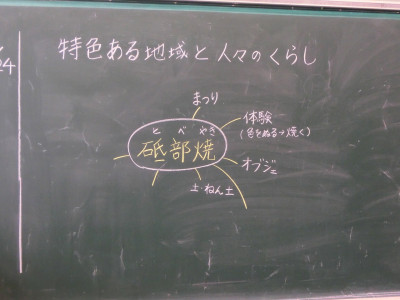 24
特色ある地域と人々のくらし
まつり
体験
(色をぬる→焼く)
とべやき
砥部焼
オブジェ
土・ねん土